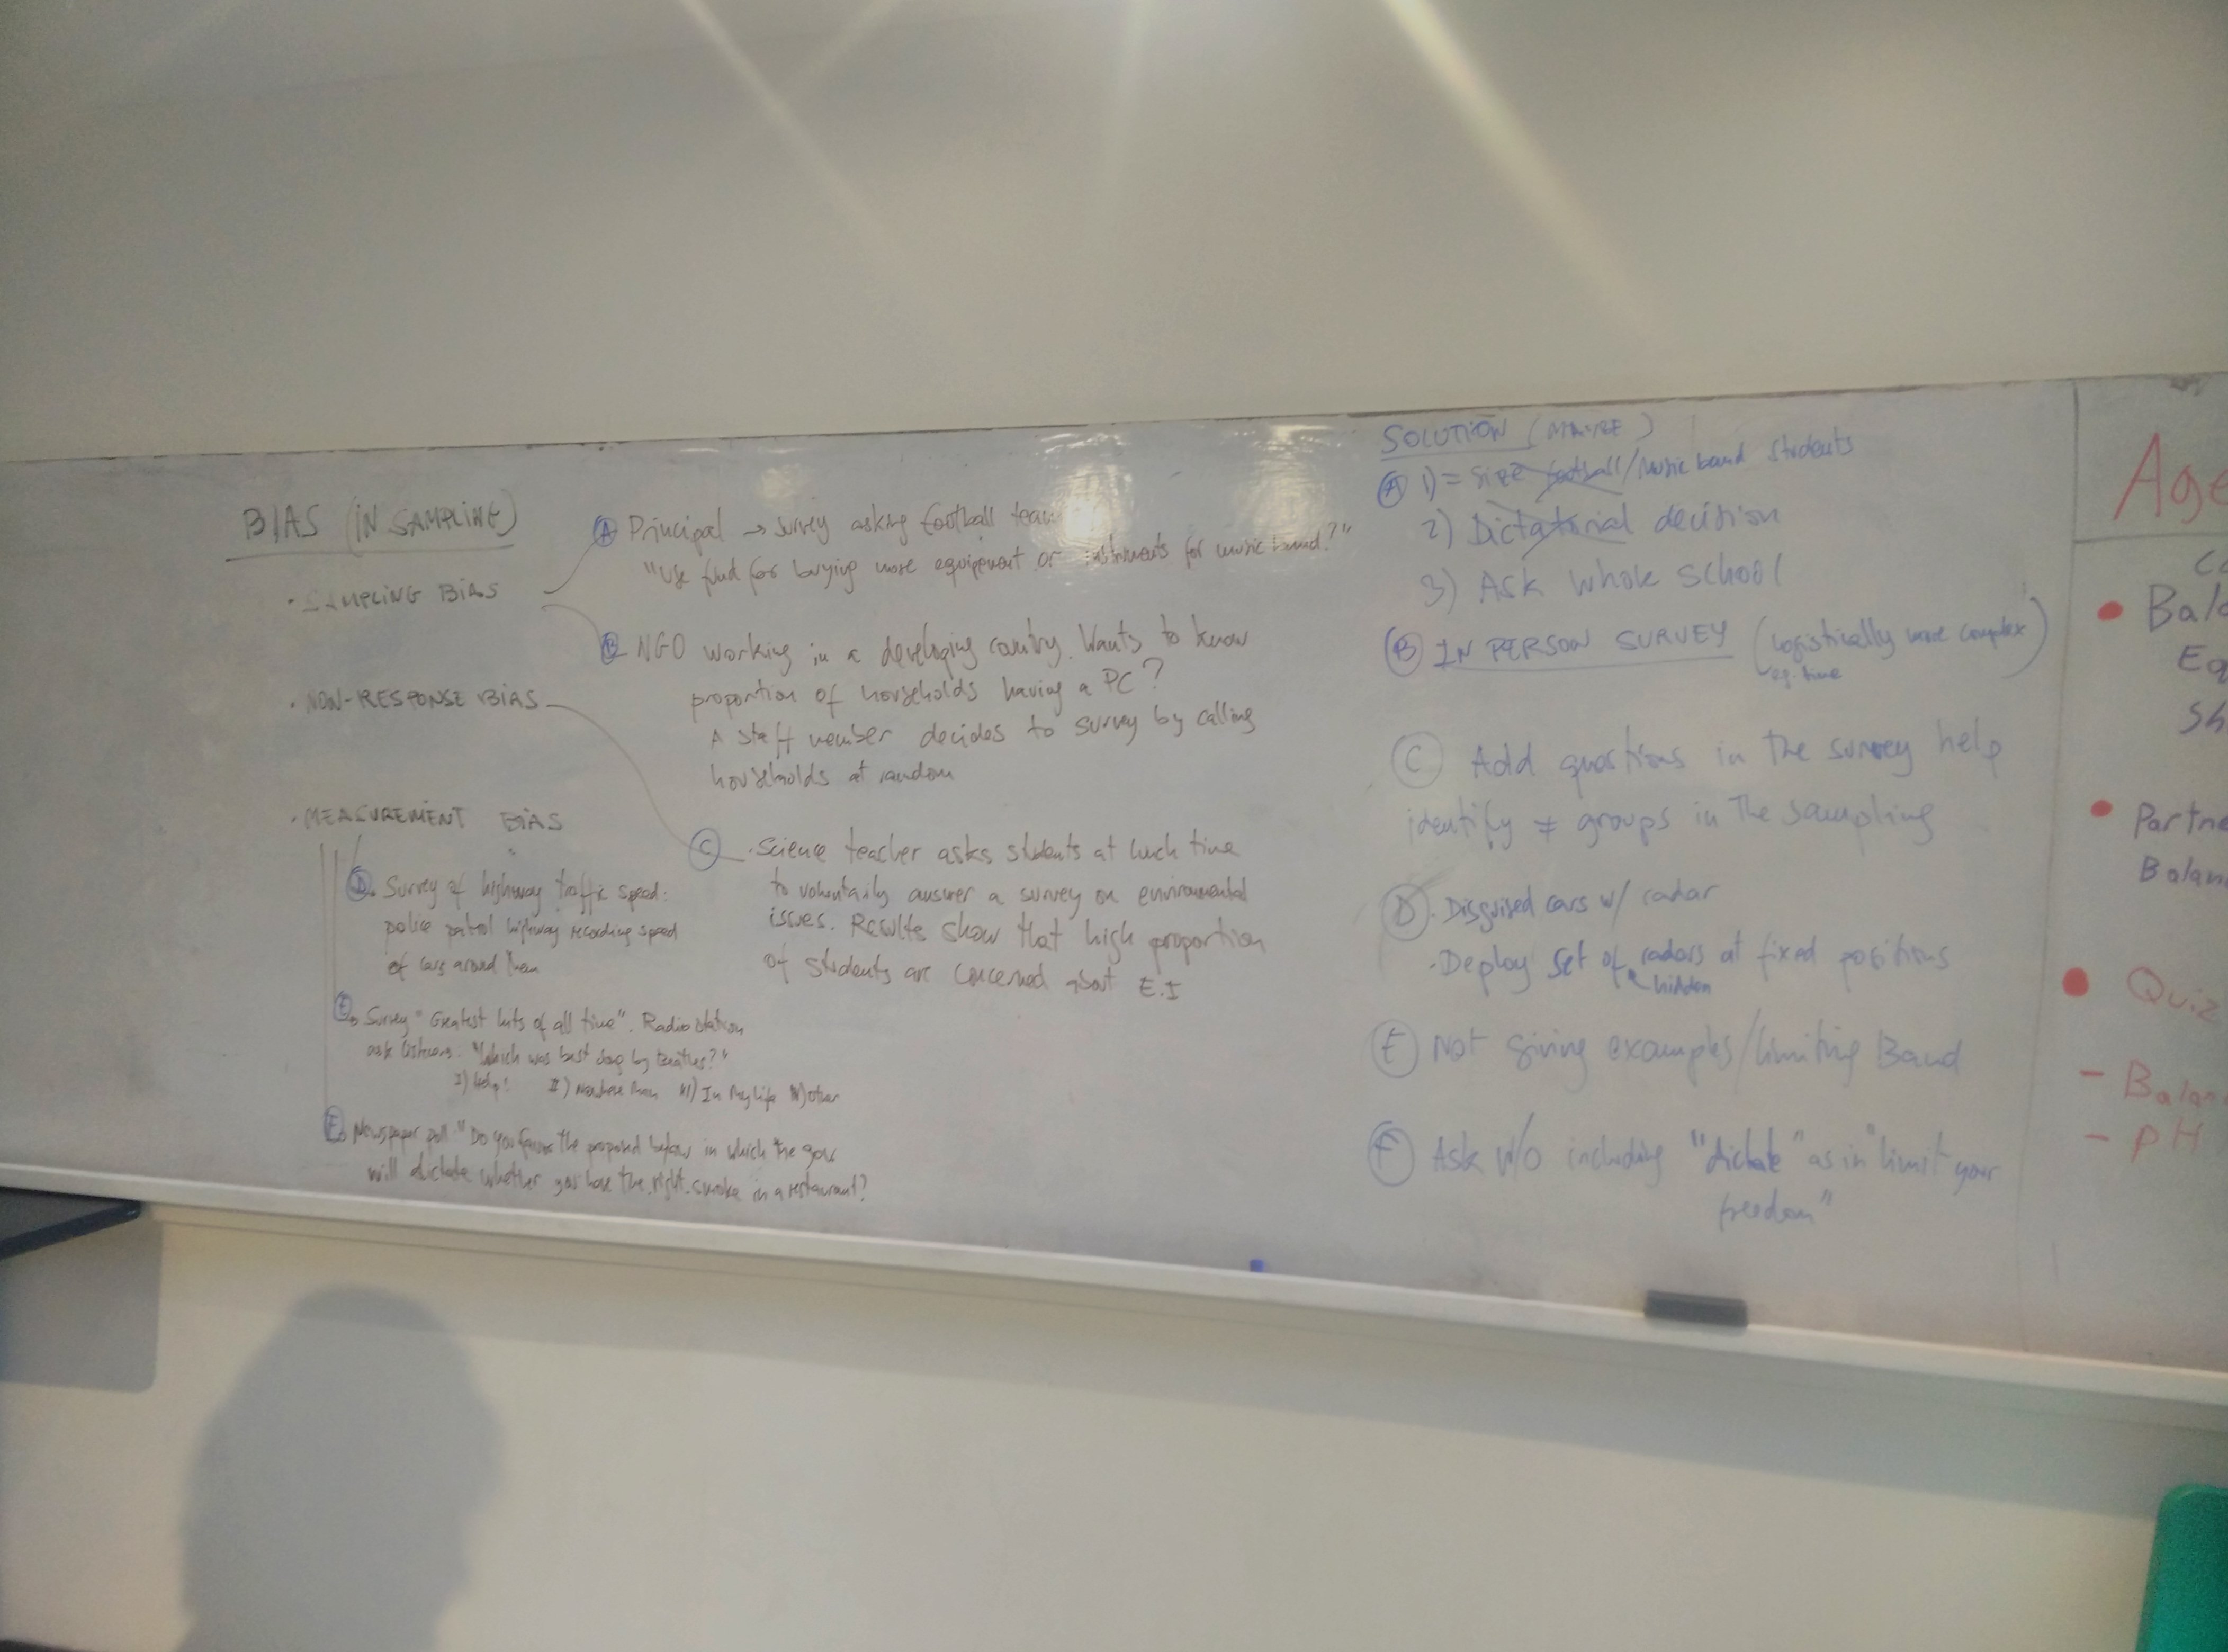 BIAS (IN SAMPLING)
· SAMPLING BIAS
A Principal → survey asking football team
"Use fund for buying more equipment or instruments for music band?"
B NGO working in a developing country. Wants to know
proportion of households having a PC?
A staff member decides to survey by calling
households at random
· NON-RESPONSE BIAS
C · Science teacher asks students at lunch time
to voluntaily answer a survey on environmental
issues. Results show that high proportion
of students are concerned about E.I
· MEASUREMENT BIAS
D. Survey of highway traffic speed:
police patrol highway recording speed
of cars around them
E. Survey "Greatest hits of all time". Radio station
ask listeners: "Which was best song by Beatles?"
I) Help! II) Nowhere Man III) In My Life IV) other
F. Newspaper poll "Do you favor the proposed bylaw in which the gov
will dictate whether you have the right smoke in a restaurant?
SOLUTION (MAYBE)
A 1) = Size football/Music band students
2) Dictatorial decision
3) Ask whole school
B IN PERSON SURVEY (logistically more complex)
eg. time
C Add questions in the survey help
identify ≠ groups in the sampling
D · Disguised cars w/ radar
· Deploy set of radars at fixed positions
hidden
E Not giving examples/limiting Band
F Ask w/o including "dictate" as in "limit your
freedom"
Age
Co
• Bala
Eq
Sh
• Partne
Balan
• Quiz
- Balan
- PH